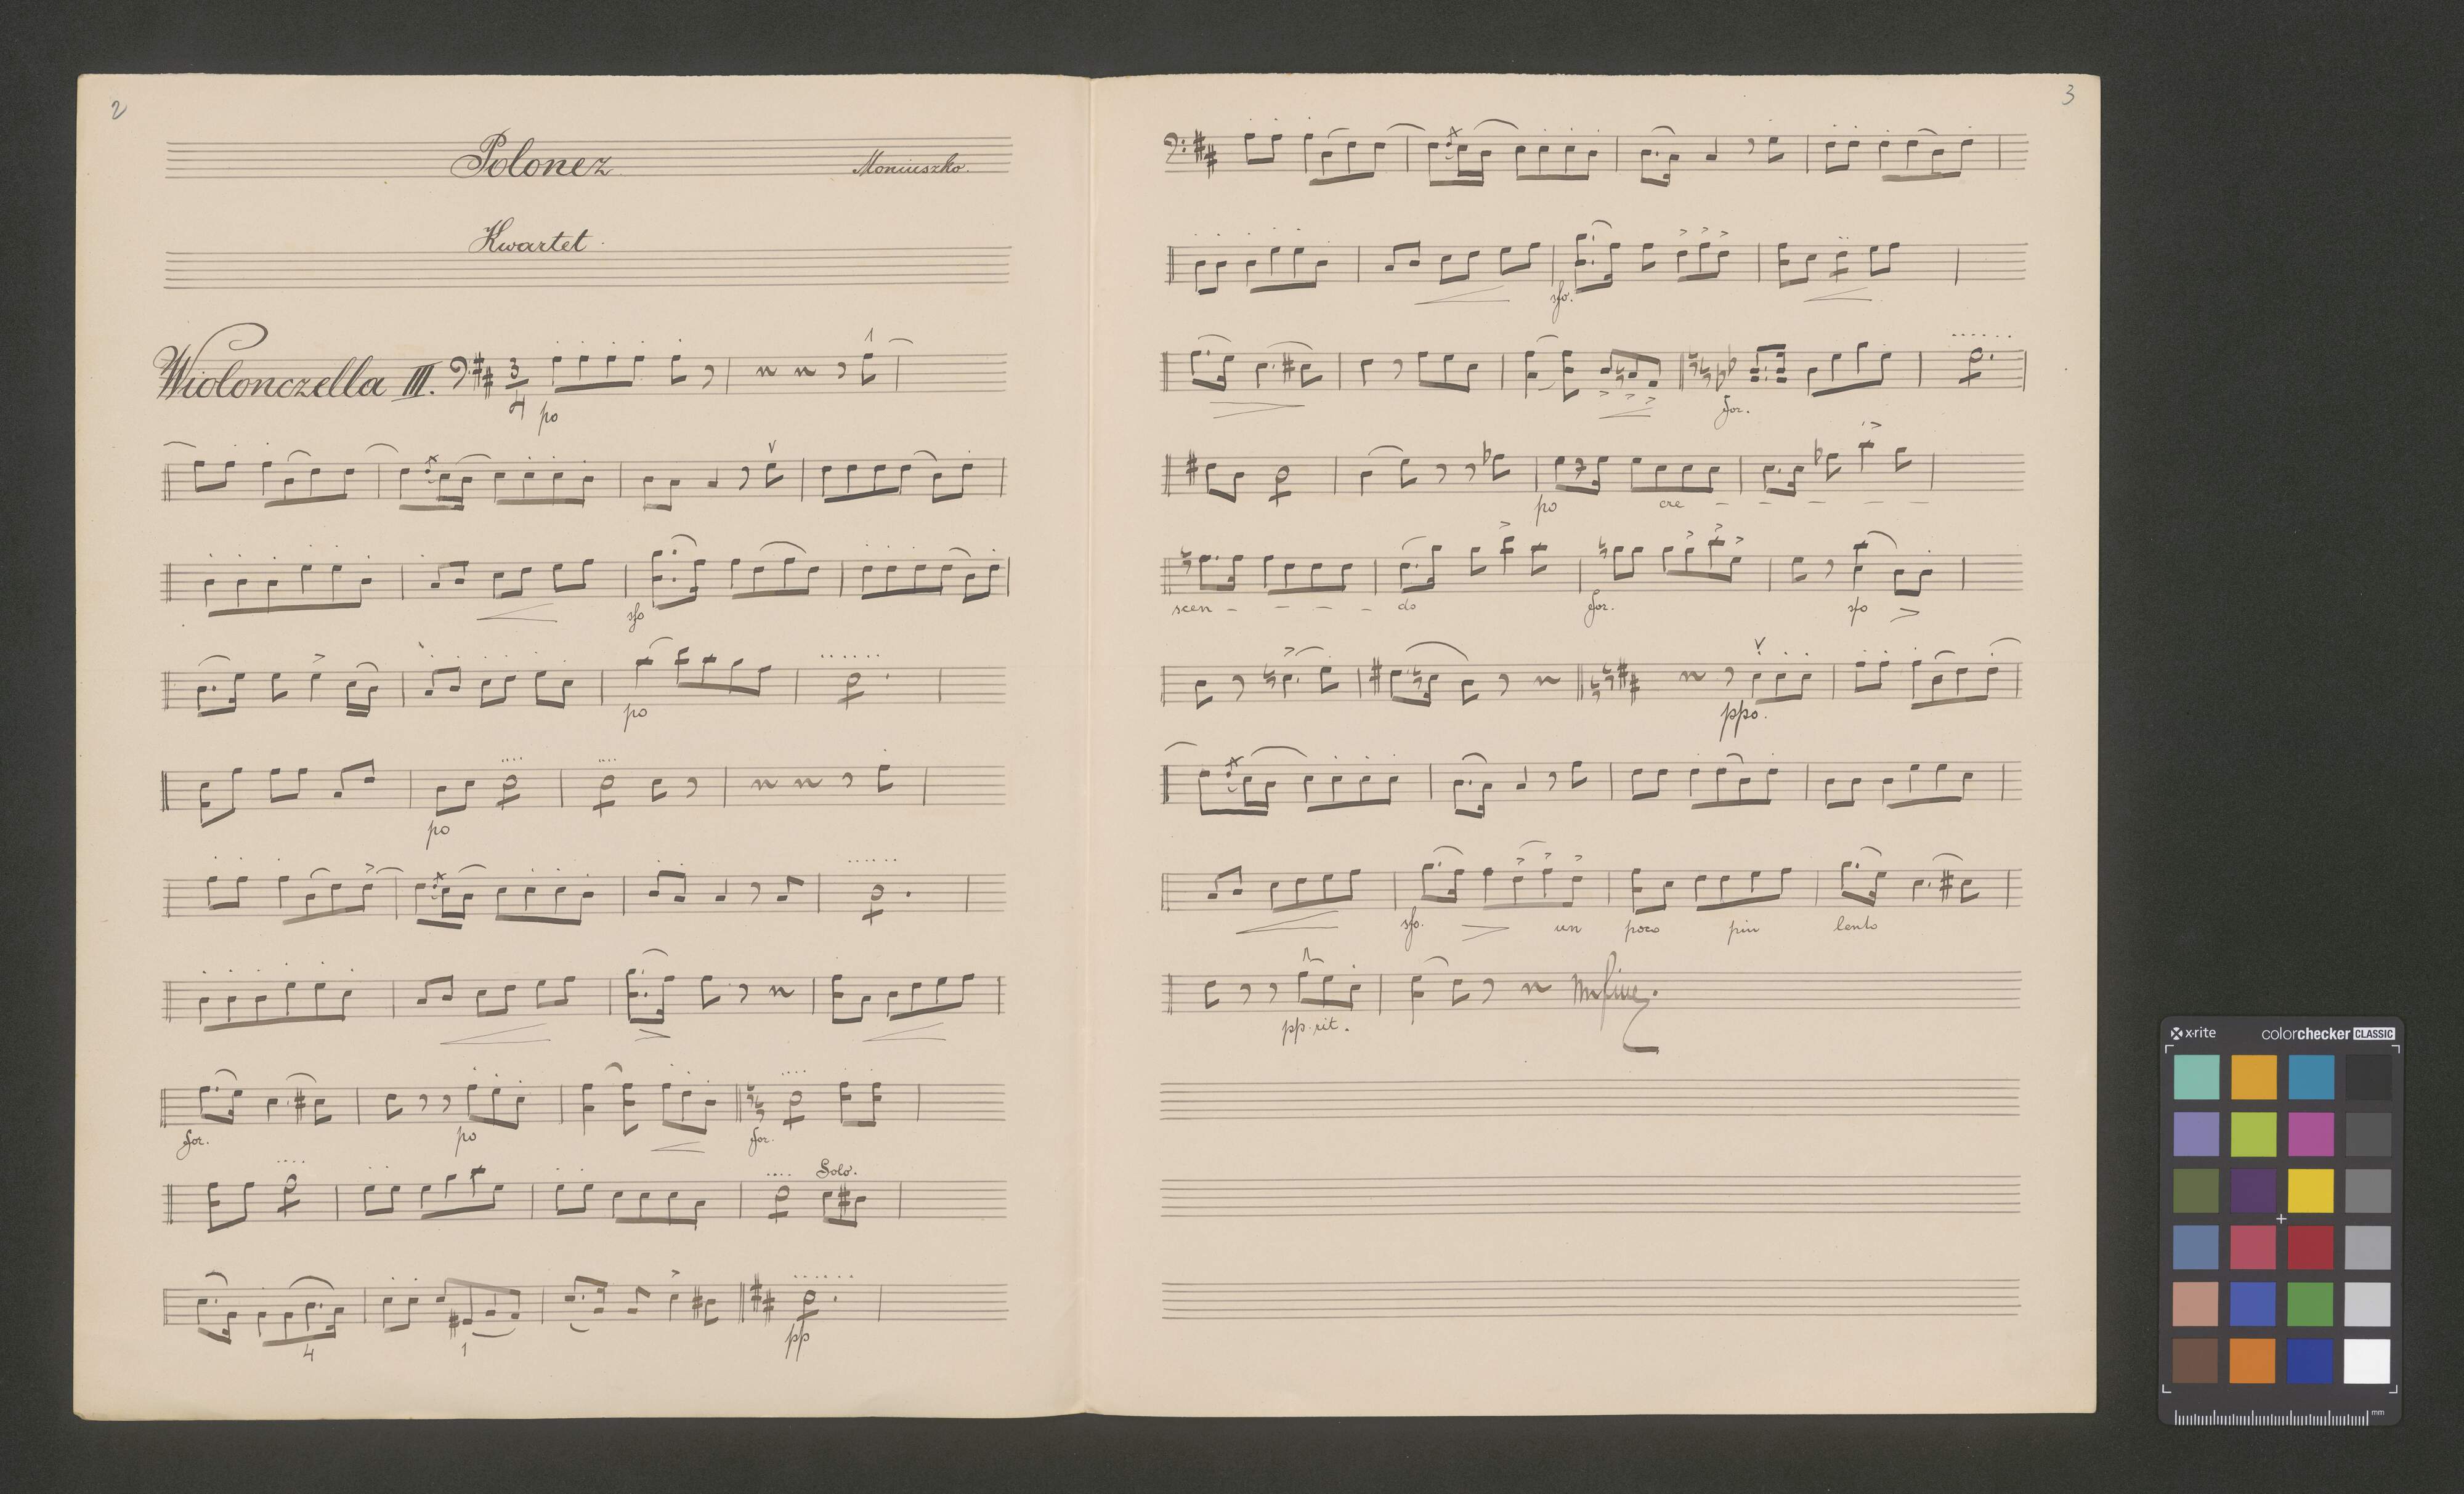 2
Polonez
Moniuszko.
Kwartet.
Wiolonczella III.
3
4
po
sfo
po
po
for.
po
for.
Solo.
4
1
pp
3
sfo.
for.
po cre - - - - -
scen - - - - do for. sfo
ppo.
sfo. un poco piu lento
pp. rit.
x-rite colorchecker CLASSIC
mm